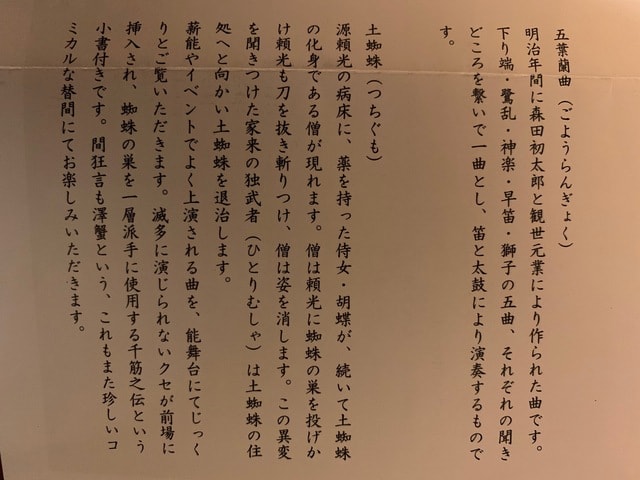 五葉蘭曲（ごようらんぎょく）
明治年間に森田初太郎と観世元業により作られた曲です。
下り端・鷺乱・神楽・早笛・獅子の五曲、それぞれの聞き
どころを繋いで一曲とし、笛と太鼓により演奏するもので
す。
土蜘蛛（つちぐも）
源頼光の病床に、薬を持った侍女・胡蝶が、続いて土蜘蛛
の化身である僧が現れます。僧は頼光に蜘蛛の巣を投げか
け頼光も刀を抜き斬りつけ、僧は姿を消します。この異変
を聞きつけた家来の独武者（ひとりむしゃ）は土蜘蛛の住
処へと向かい土蜘蛛を退治します。
薪能やイベントでよく上演される曲を、能舞台にてじっく
りとご覧いただきます。滅多に演じられないクセが前場に
挿入され、蜘蛛の巣を一層派手に使用する千筋之伝という
小書付きです。間狂言も澤蟹という、これもまた珍しいコ
ミカルな替間にてお楽しみいただきます。